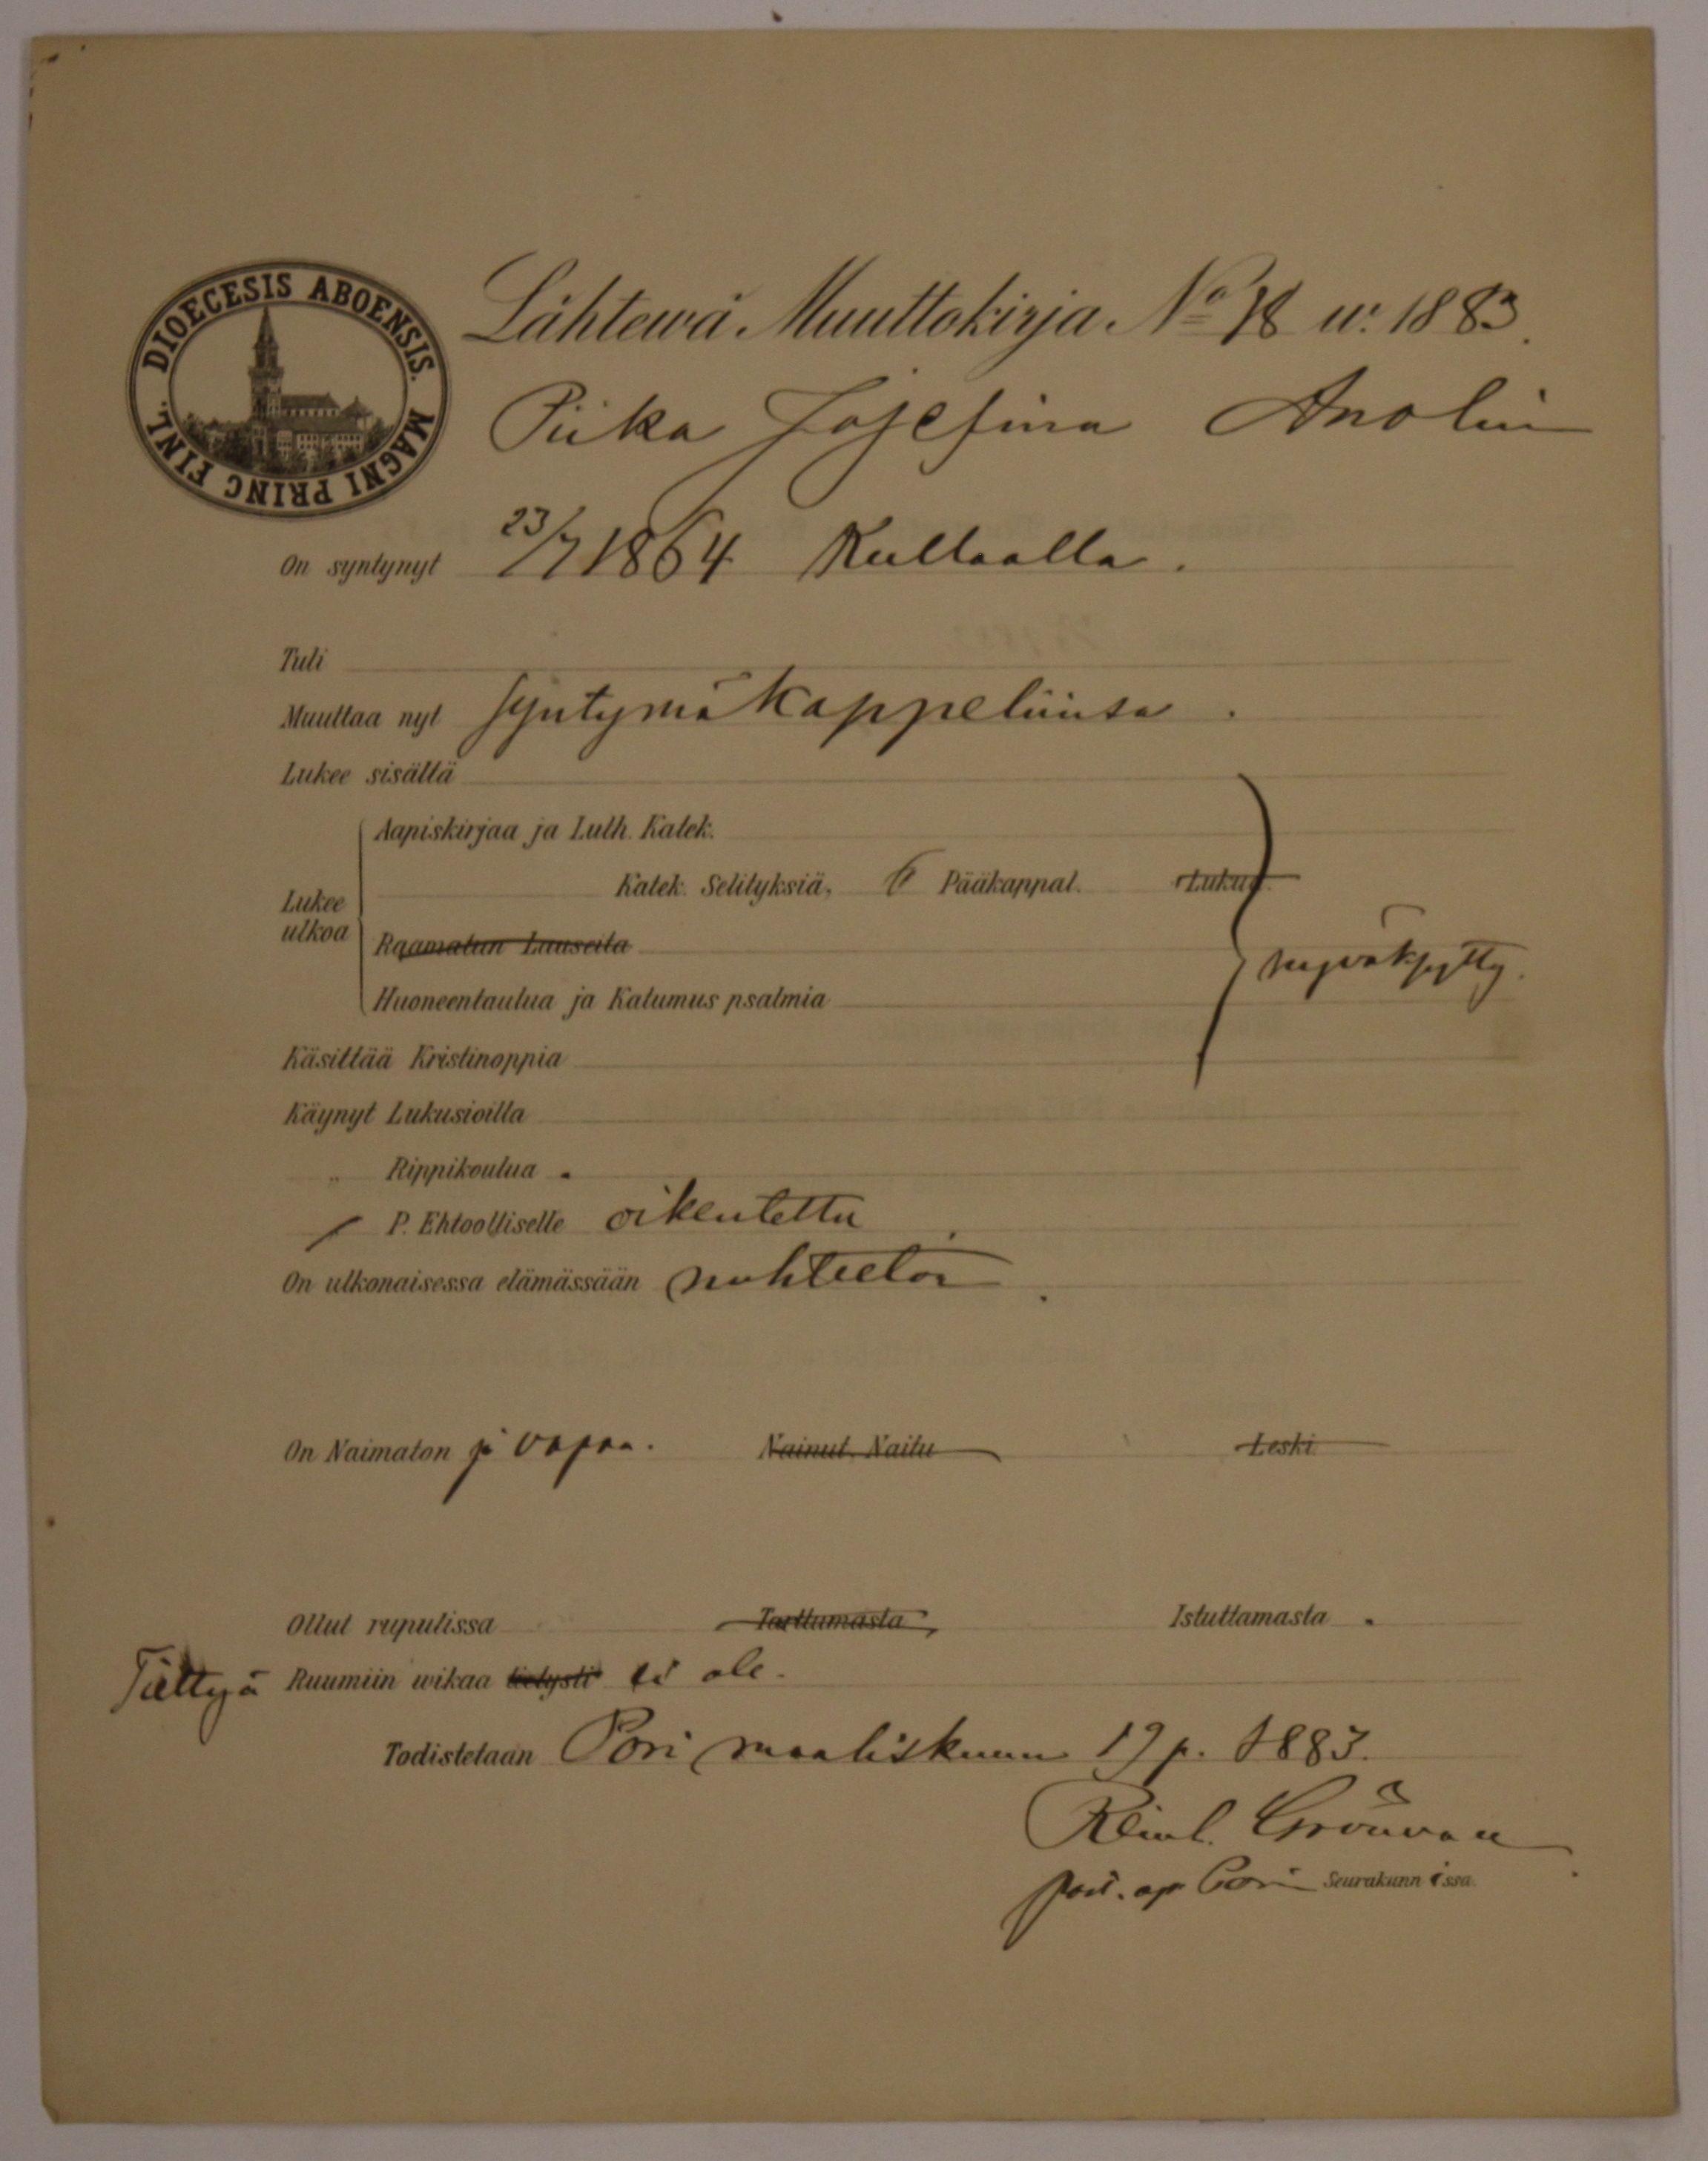 DIOECESIS ABOENSIS. MAGNI PRINC FINL.
Lähtewä Muuttokirja No 78 w. 1883.
Piika Josefina Anolin
On syntynyt 23/7 1864 Kullaalla.
Tuli
Muuttaa nyt syntymäkappeliinsa.
Lukee sisältä
Aapiskirjaa ja Luth. Katek.
Katek. Selityksiä, 6 Pääkappal. Lukua.
Lukee ulkoa
Raamatun Lauseita
hyväksytty.
Huoneentaulua ja Katumus psalmia
Käsittää Kristinoppia
Käynyt Lukusioilla
„ Rippikoulua
P. Ehtoolliselle oikeutettu
On ulkonaisessa elämässään nuhteeton.
On Naimaton ja vapaa. Nainut. Naitu Leski
Ollut rupulissa Tarttumasta, Istuttamasta
Tiettyä Ruumiin wikaa tietysti ei ole.
Todistetaan Pori maaliskuun 19 p. 1883.
Reinh. Grönvall
past. ap Pori Seurakunnissa.